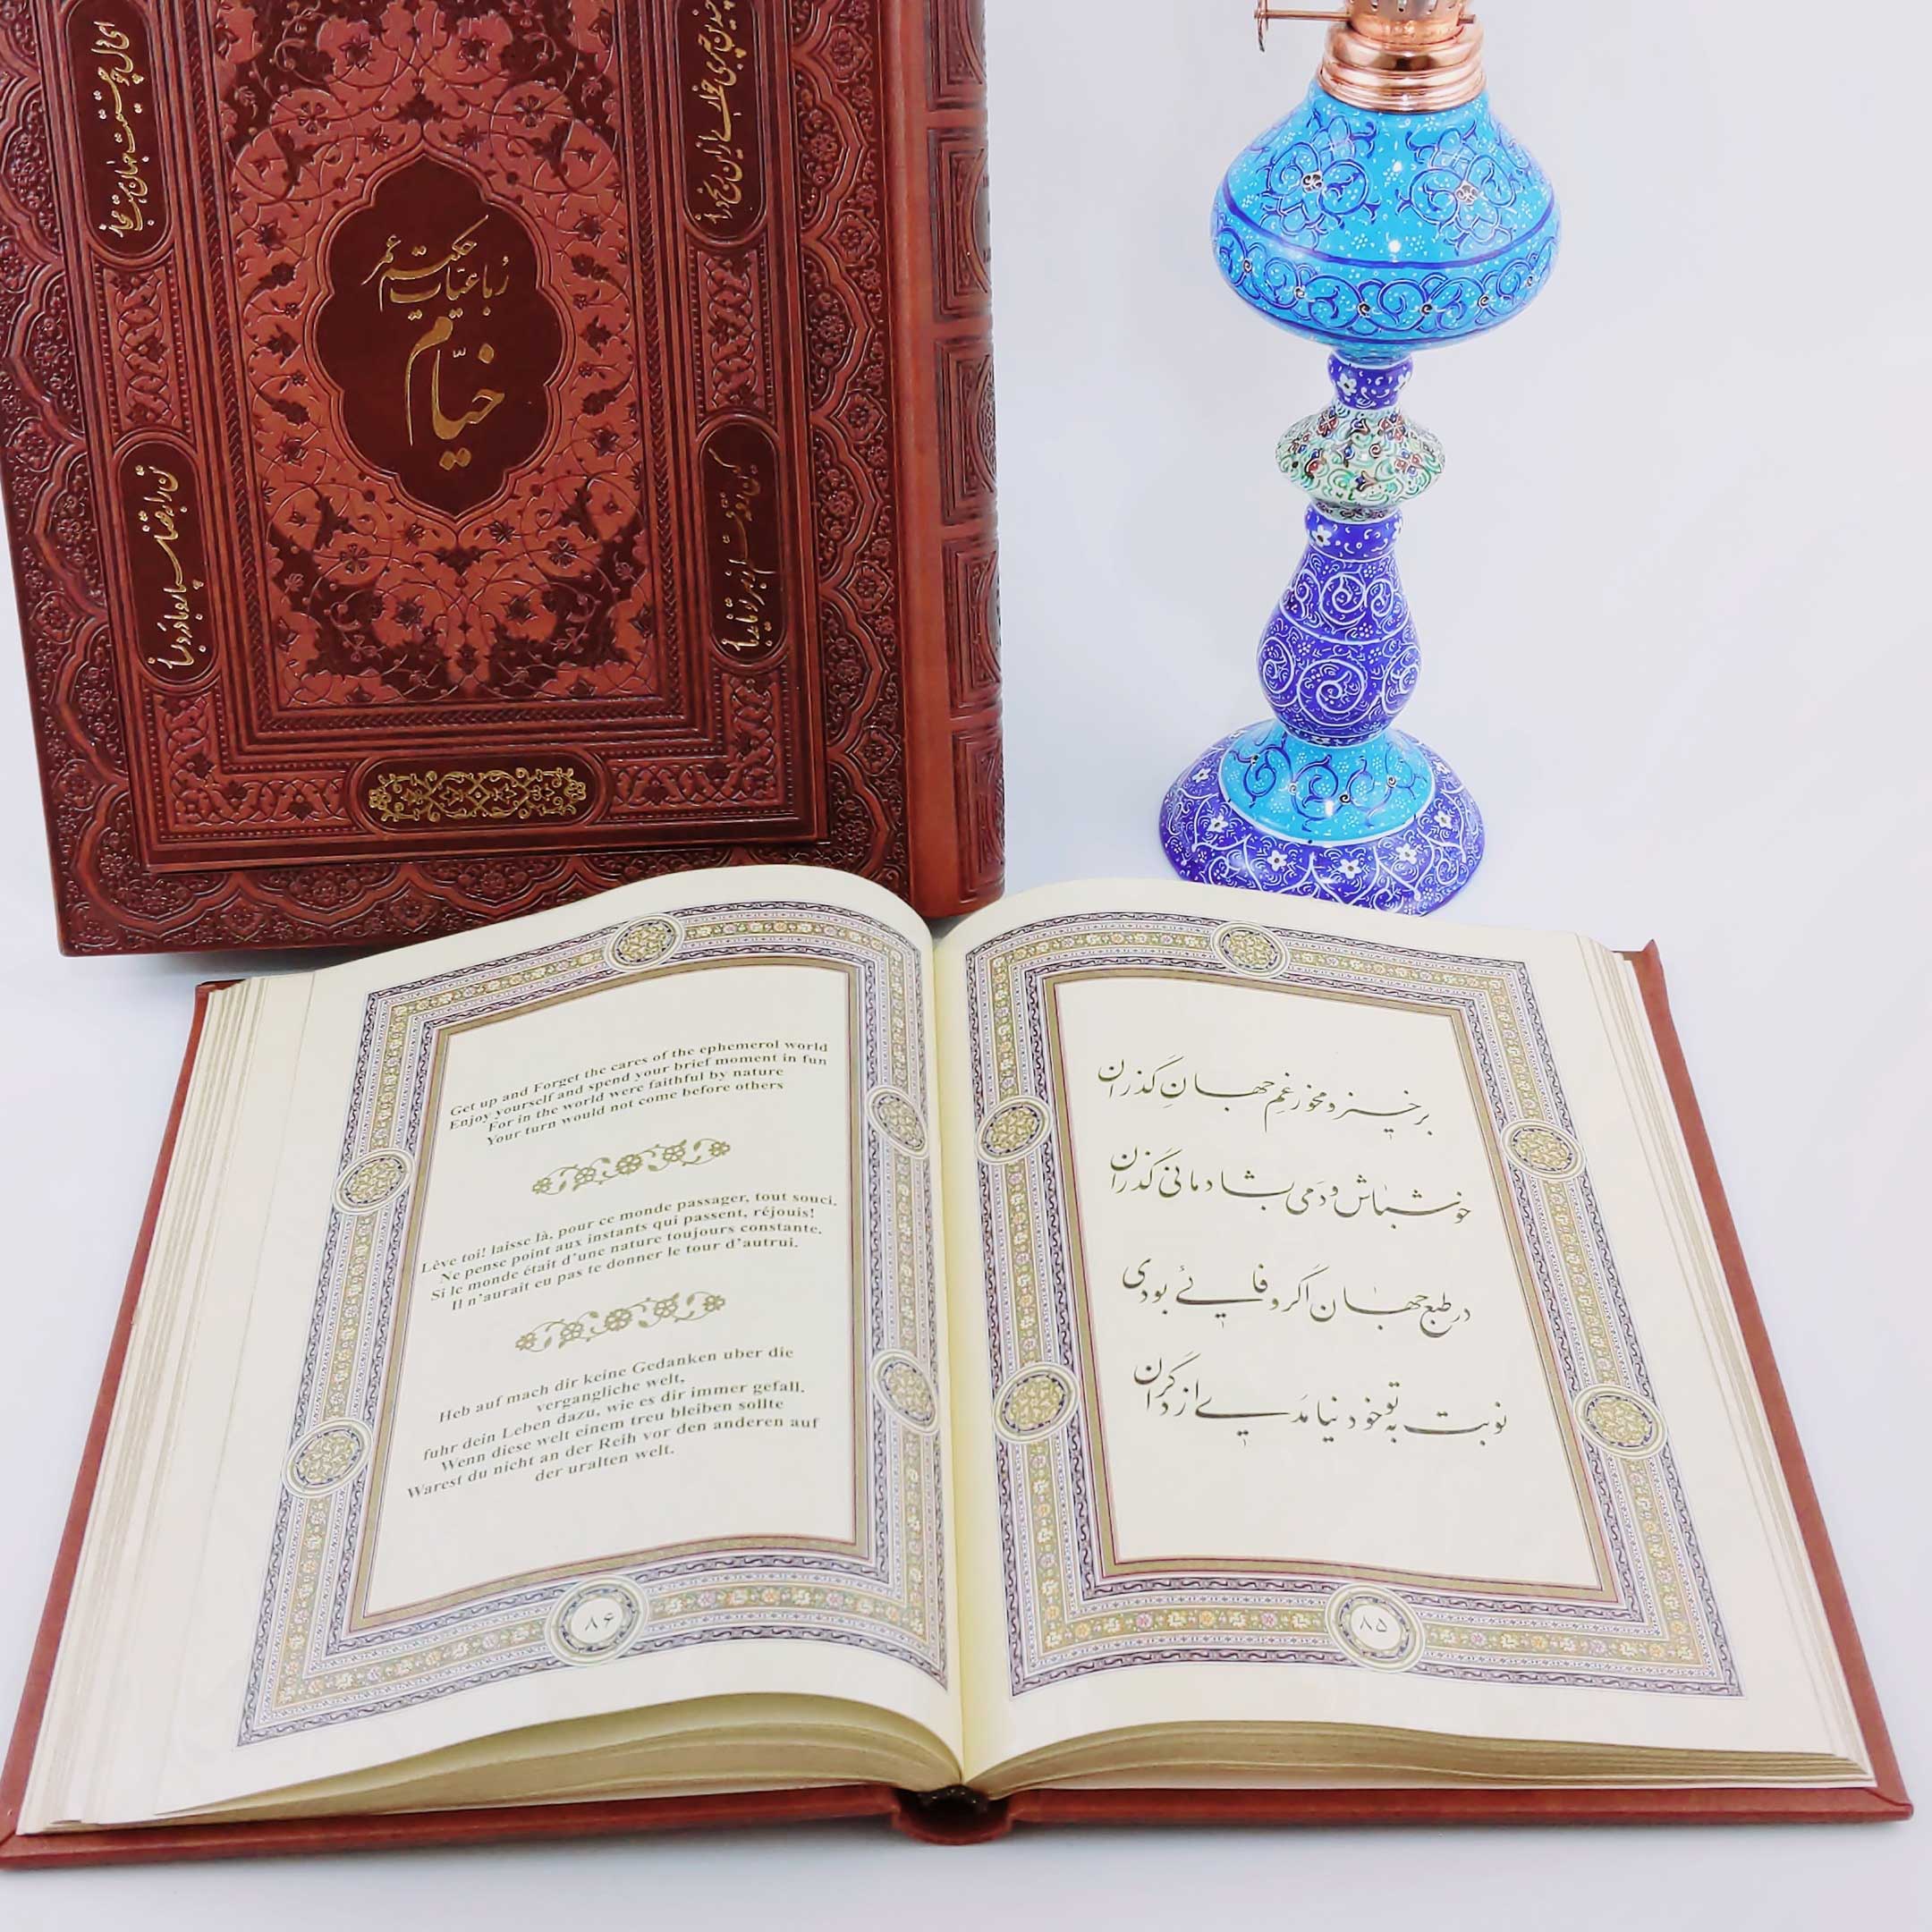 ای دل چو حقیقت جهان هست مجاز
چندین چه بری خواری ازین رنج دراز
تن را به قضا سپار و با درد بساز
کاین رفته قلم ز بهر تو ناید باز
رُباعیّات حکیم عمر
خیّام
Get up and Forget the cares of the ephemerol world
Enjoy yourself and spend your brief moment in fun
For in the world were faithful by nature
Your turn would not come before others
Lève toi! laisse là, pour ce monde passager, tout souci.
Ne pense point aux instants qui passent, réjouis!
Si le monde était d'une nature toujours constante.
Il n'aurait eu pas te donner le tour d'autrui.
Heb auf mach dir keine Gedanken uber die
vergangliche welt,
fuhr dein Leben dazu, wie es dir immer gefall.
Wenn diese welt einem treu bleiben sollte
Warest du nicht an der Reih vor den anderen auf
der uralten welt.
۸۶
برخیز و مخور غمِ جهانِ گذران
خوش باش و دَمی بشادمانی گذران
در طبع جهان اگر وفائی بودی
نوبت به تو خود نیامدی از دگران
۸۵